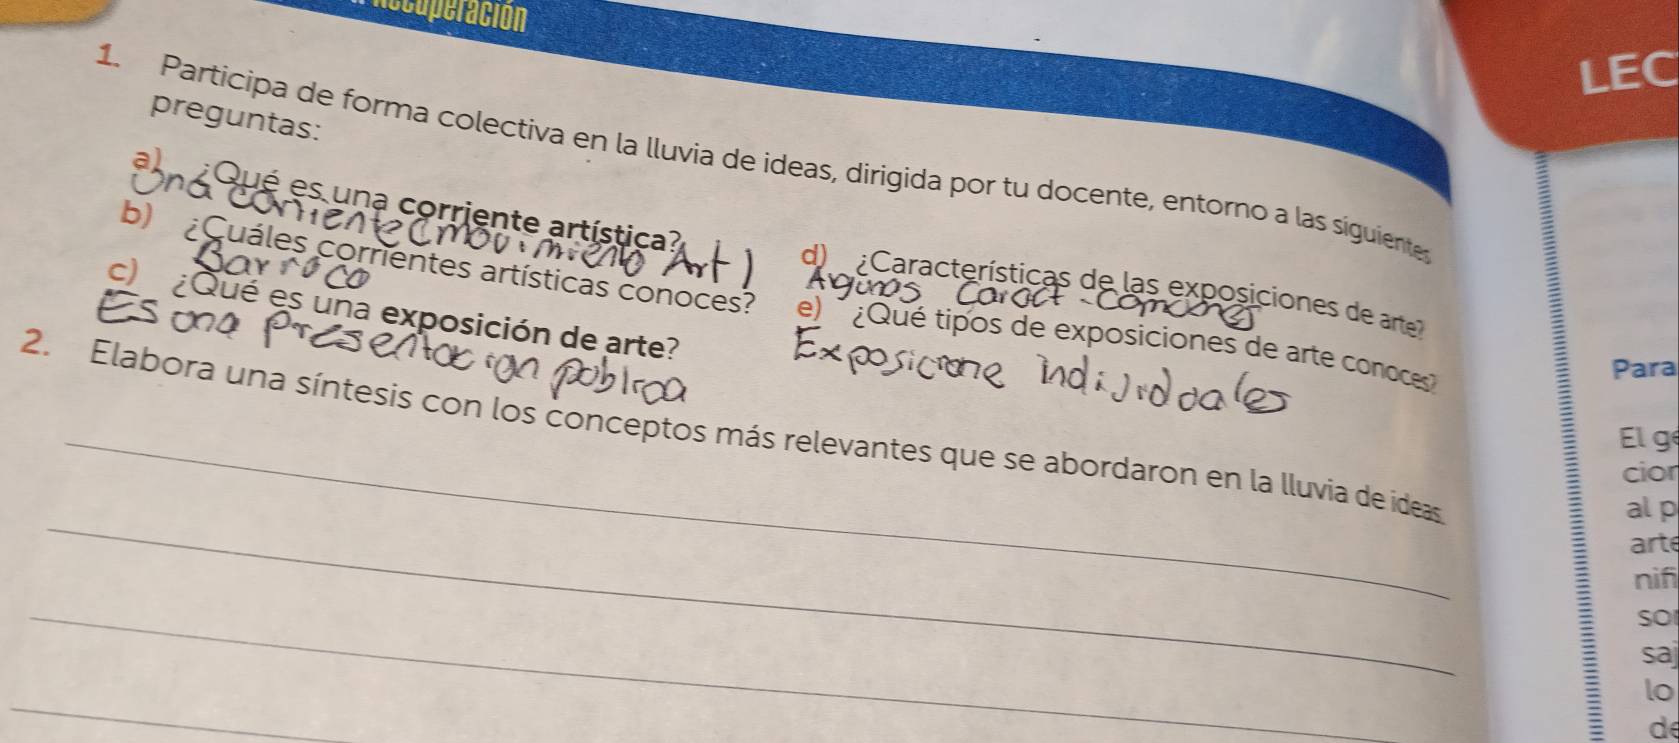 Recuperación
LEC
1. Participa de forma colectiva en la lluvia de ideas, dirigida por tu docente, entorno a las siguientes
preguntas:
a) ¿Qué es una corriente artística?
Una corriente (movimiento Art)
b) ¿Cuáles corrientes artísticas conoces?
Barroco
c) ¿Qué es una exposición de arte?
Es una Presentacion poblica
d) ¿Características de las exposiciones de arte?
Caract - comunes
e) ¿Qué tipos de exposiciones de arte conoces?
Exposicione individuales
2. Elabora una síntesis con los conceptos más relevantes que se abordaron en la lluvia de ideas.
Para
El gé
cion
al p
arte
nifi
so
saj
lo
de